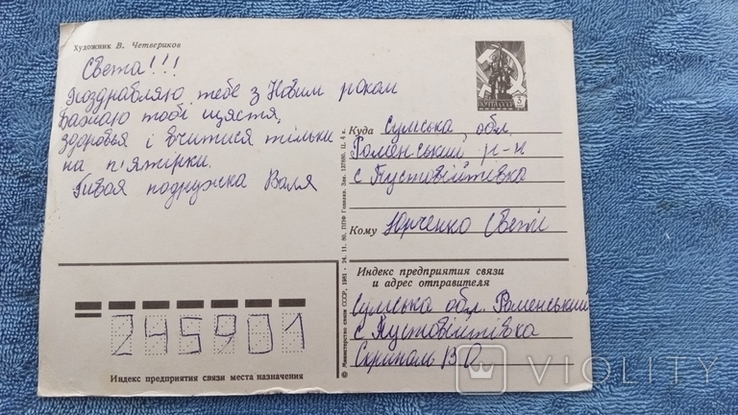 Художник В. Четвериков
Света!!!
Поздравляю тебе з Новим роком
Бажаю тобі щястя,
здоровья і вчитися тільки
на п'ятірки.
Твоя подружка Валя
Куда Сумська обл.
Роменський р-н
с Пустовійтівка
Кому Юрченко Светі
Индекс предприятия связи
и адрес отправителя
Сумська обл. Роменський
с Пустовійтівка
Скрипаль В О
245901
Индекс предприятия связи места назначения
VIOLITY